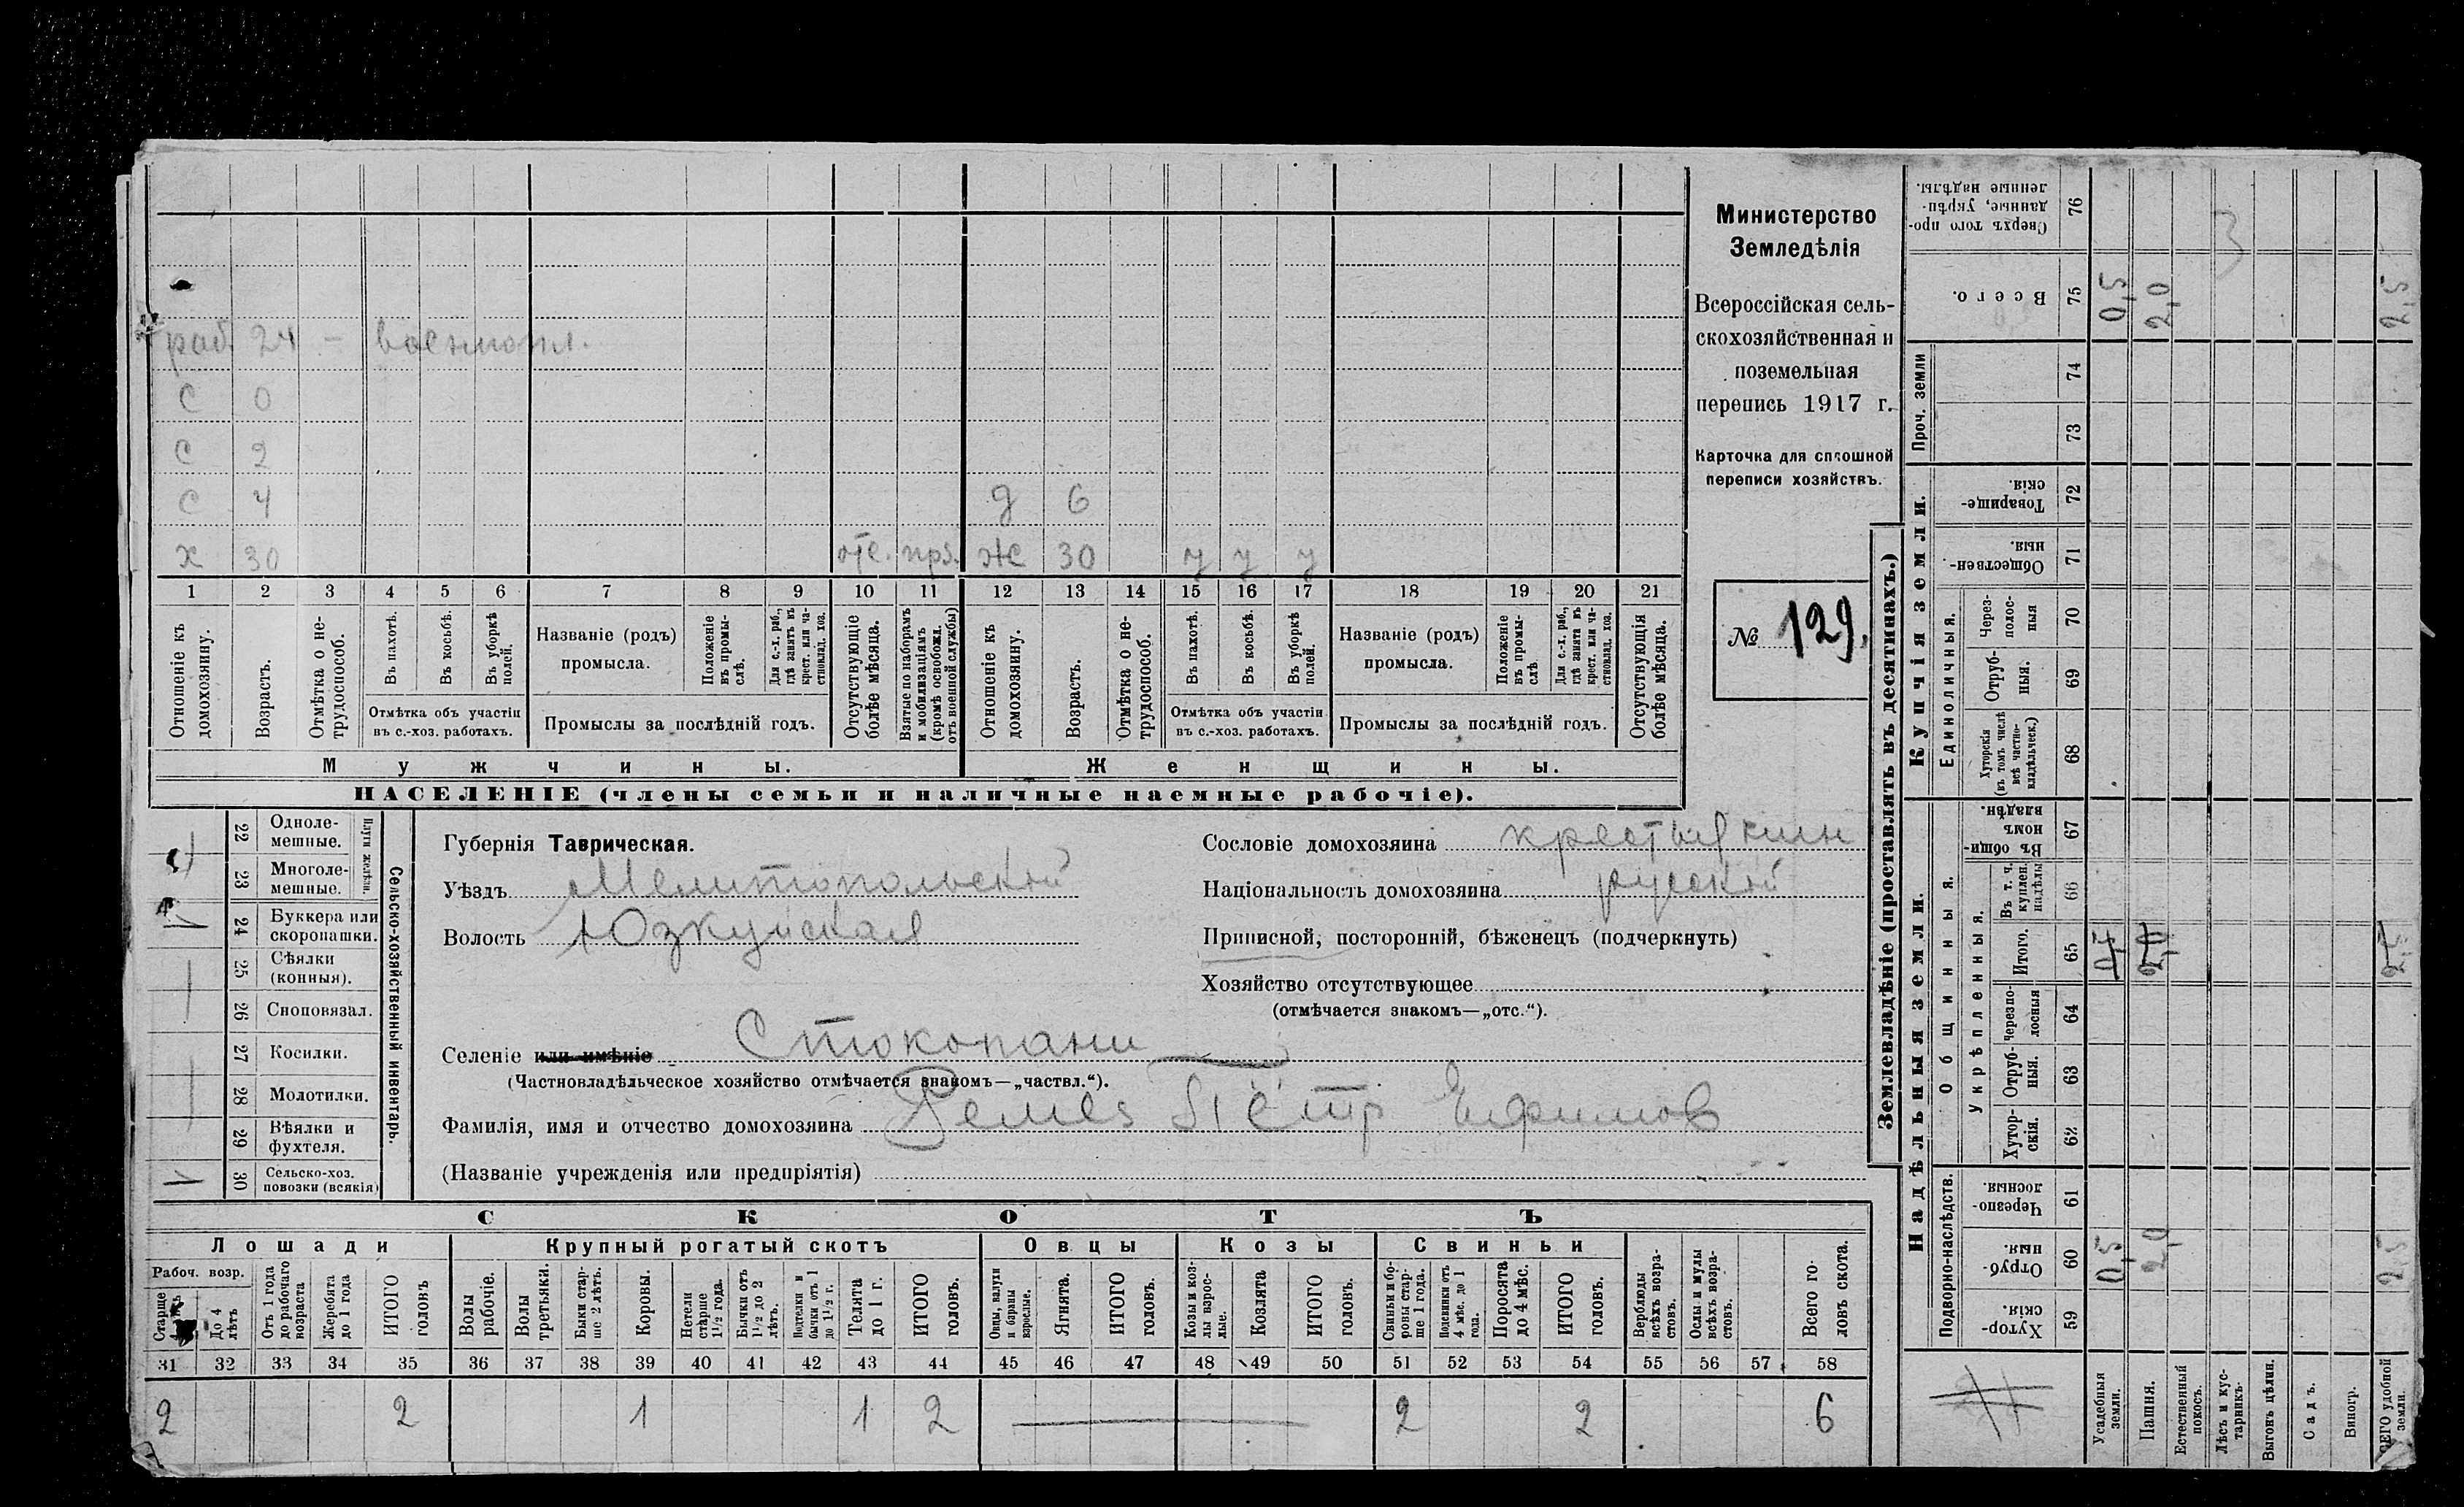 раб. 24 — военнопл.
С 0
С 2
С 4 д 6
х 30 отс. Ж 30 у у у
1 2 3 4 5 6 7 8 9 10 11 12 13 14 15 16 17 18 19 20 21
Отношеніе къ домохозяину.
Возрастъ.
Отмѣтка о не-трудоспособ.
Въ пахотѣ.
Въ косьбѣ.
Въ уборкѣ полей.
Отмѣтка объ участіи въ с.-хоз. работахъ.
Названіе (родъ) промысла.
Положеніе въ промы-слѣ.
Для с.-х. раб., гдѣ занятъ въ крест. или ча-стновлад. хоз.
Промыслы за послѣдній годъ.
Отсутствующіе болѣе мѣсяца.
Взятые по наборамъ и мобилизаціямъ (кромѣ освобожд. отъ военной службы)
Отношеніе къ домохозяину.
Возрастъ.
Отмѣтка о не-трудоспособ.
Въ пахотѣ.
Въ косьбѣ.
Въ уборкѣ полей.
Отмѣтка объ участіи въ с.-хоз. работахъ.
Названіе (родъ) промысла.
Положеніе въ промы-слѣ.
Для с.-х. раб., гдѣ занята въ крест. или ча-стновлад. хоз.
Промыслы за послѣдній годъ.
Отсутствующія болѣе мѣсяца.
Мужчины.
Женщины.
НАСЕЛЕНІЕ (члены семьи и наличные наемные рабочіе).
Министерство
Земледѣлія
Всероссійская сель-
скохозяйственная и
поземельная
перепись 1917 г.
Карточка для сплошной
переписи хозяйствъ.
№ 129.
22 Одноле-мешные.
23 Многоле-мешные.
Плуги желѣзн.
24 Буккера или скоропашки.
25 Сѣялки (конныя).
26 Сноповязал.
27 Косилки.
28 Молотилки.
29 Вѣялки и фухтеля.
30 Сельско-хоз. повозки (всякія)
Сельско-хозяйственный инвентарь.
Губернія Таврическая.
Уѣздъ Мелитопольский
Волость Юзкуйская
Сословіе домохозяина крестьянин
Національность домохозяина русский
Приписной, посторонній, бѣженецъ (подчеркнуть)
Хозяйство отсутствующее
(отмѣчается знакомъ—„отс.“).
Селеніе или имѣніе Стокопани
(Частновладѣльческое хозяйство отмѣчается знакомъ—„частвл.“).
Фамилія, имя и отчество домохозяина Ремез Пётр Ефимов
(Названіе учрежденія или предпріятія)
СКОТЪ
Лошади
Крупный рогатый скотъ
Овцы
Козы
Свиньи
Рабоч. возр.
Старше
До 4 лѣтъ
Отъ 1 года до рабочаго возраста
Жеребята до 1 года
ИТОГО головъ
Волы рабочіе.
Волы третьяки.
Быки стар-ше 2 лѣтъ.
Коровы.
Нетели старше 1½ года.
Бычки отъ 1½ до 2 лѣтъ.
Подтелки и бычки отъ 1 до 1½ г.
Телята до 1 г.
ИТОГО головъ.
Овцы, валухи и бараны взрослые.
Ягнята.
ИТОГО головъ.
Козы и коз-лы взрос-лые.
Козлята
ИТОГО головъ.
Свиньи и бо-ровы стар-ше 1 года.
Подсвинки отъ 4 мѣс. до 1 года.
Поросята до 4 мѣс.
ИТОГО головъ.
Верблюды всѣхъ возра-стовъ.
Ослы и мулы всѣхъ возра-стовъ.
Всего го-ловъ скота.
31 32 33 34 35 36 37 38 39 40 41 42 43 44 45 46 47 48 49 50 51 52 53 54 55 56 57 58
2 2 1 1 2 2 2 6
Землевладѣніе (проставлять въ десятинахъ.)
Купчія земли.
Надѣльныя земли.
Сверхъ того про-данные, укрѣп-ленные надѣлы. 76
Всего. 75 0,5 2,0 2,5
Проч. земли 74 73
Товарище-скія. 72
Обществен-ныя. 71
Единоличныя.
Через-полос-ныя 70
Отруб-ныя. 69
Хуторскія (въ томъ числѣ всѣ частно-владѣльческ.) 68
Общинныя.
Въ общи-номъ владѣн. 67
Укрѣпленныя.
Въ т. ч. куплен. надѣлы 66
Итого. 65
Черезпо-лосныя 64
Отруб-ныя. 63
Хутор-скія. 62
Подворно-наслѣдств.
Черезпо-лосныя. 61
Отруб-ныя. 60 0,5 2,0 2,5
Хутор-скія. 59
Усадебныя земли.
Пашня.
Естественный покосъ.
Лѣсъ и кус-тарникъ.
Выгонъ цѣлин.
Садъ.
Виногр.
ВСЕГО удобной земли.